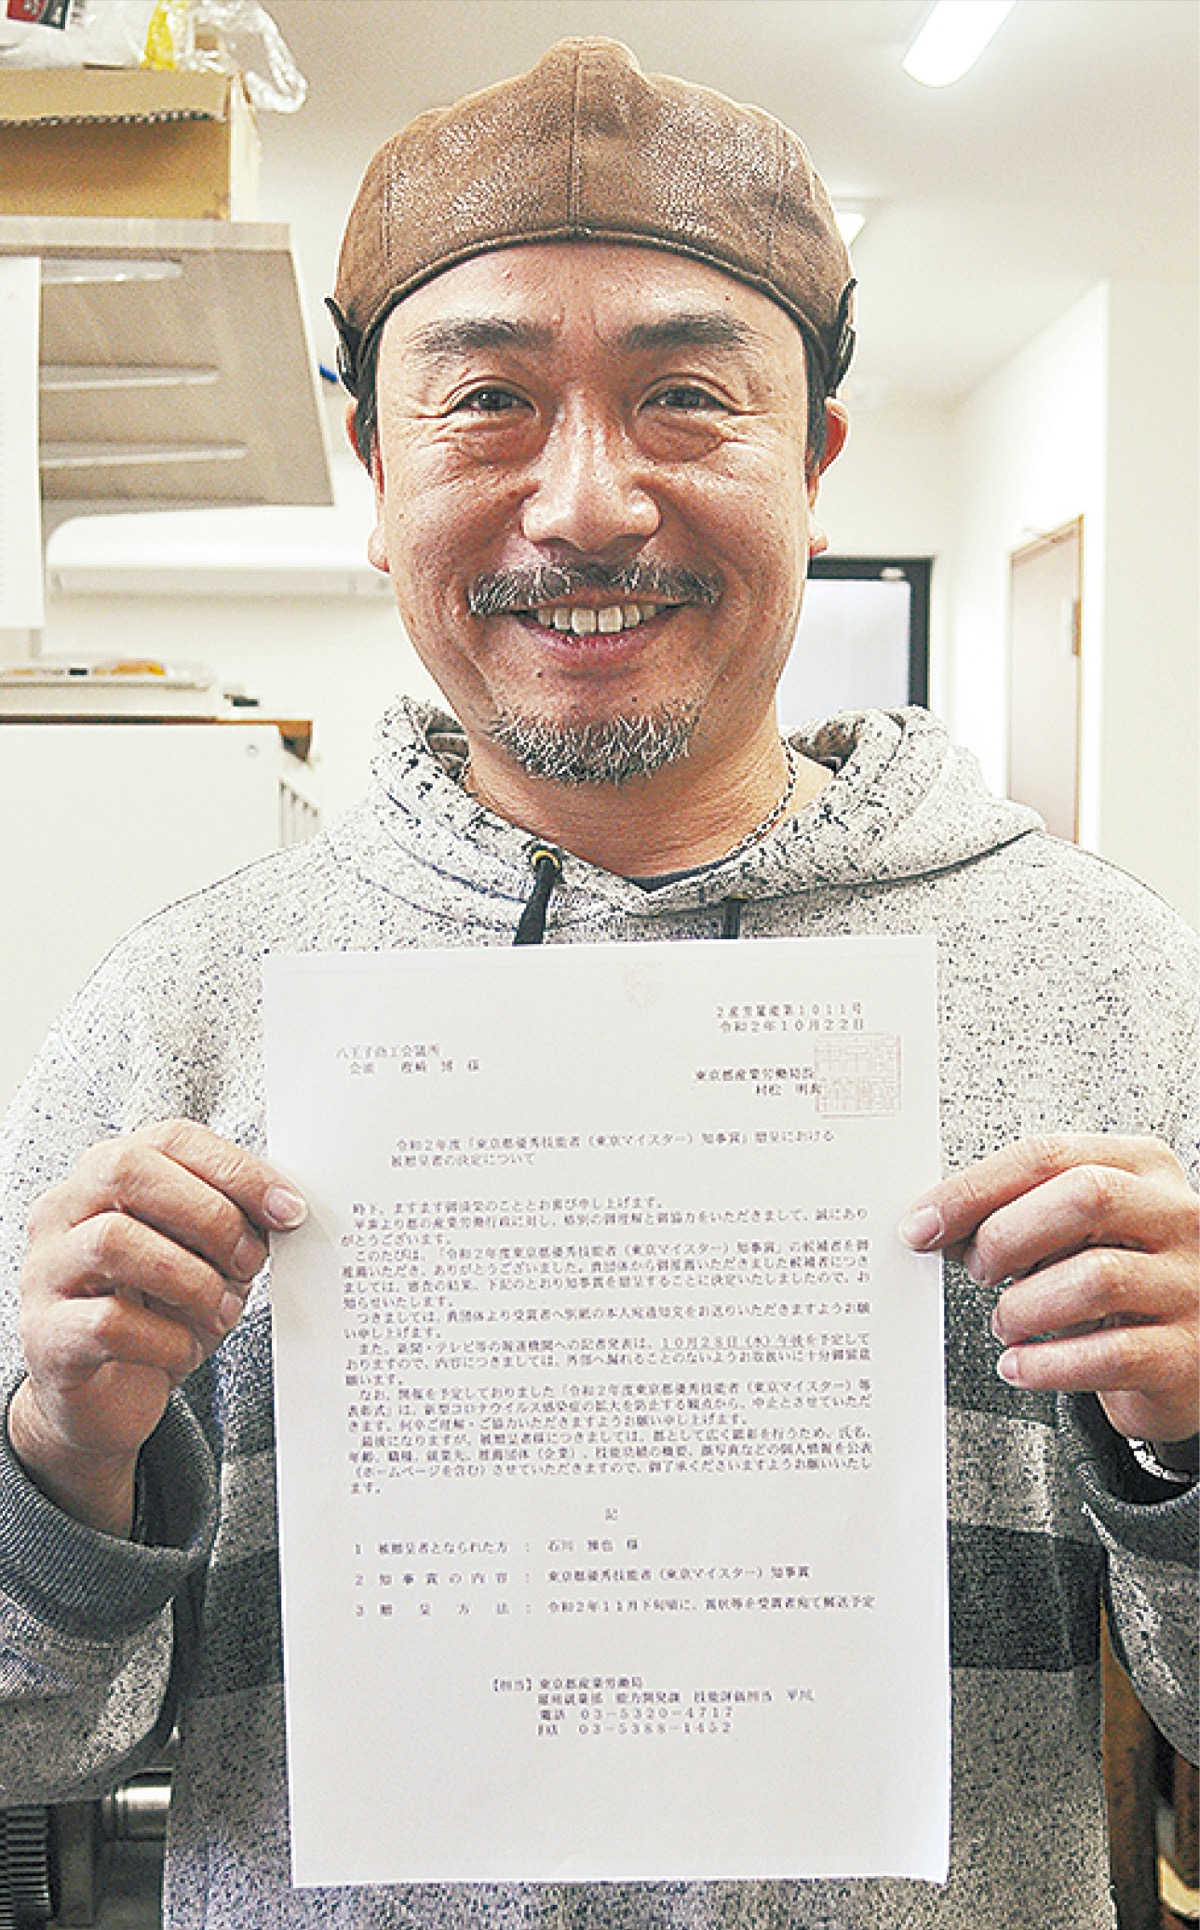 ２産労雇能第１０１１号
令和２年１０月２２日
八王子商工会議所
会頭 様
東京都産業労働局長
村松 明典
令和２年度「東京都優秀技能者（東京マイスター）知事賞」贈呈における
被贈呈者の決定について
時下、ますます御清栄のこととお喜び申し上げます。
平素より都の産業労働行政に対し、格別の御理解と御協力をいただきまして、誠にあり
がとうございます。
このたびは、「令和２年度東京都優秀技能者（東京マイスター）知事賞」の候補者を御
推薦いただき、ありがとうございました。貴団体から御推薦いただきました候補者につき
ましては、審査の結果、下記のとおり知事賞を贈呈することに決定いたしましたので、お
知らせいたします。
つきましては、貴団体より受賞者へ別紙の本人宛通知文をお送りいただきますようお願
い申し上げます。
また、新聞・テレビ等の報道機関への記者発表は、１０月２８日（水）午後を予定して
おりますので、内容につきましては、外部へ漏れることのないようお取扱いに十分御留意
願います。
なお、開催を予定しておりました「令和２年度東京都優秀技能者（東京マイスター）等
表彰式」は、新型コロナウイルス感染症の拡大を防止する観点から、中止とさせていただ
きます。何卒ご理解・ご協力いただきますようお願い申し上げます。
最後になりますが、被贈呈者様につきましては、都として広く顕彰を行うため、氏名、
年齢、職種、就業先、推薦団体（企業）、技能功績の概要、顔写真などの個人情報を公表
（ホームページを含む）させていただきますので、御了承くださいますようお願いいたし
ます。
記
１ 被贈呈者となられた方 ： 石川 雅也 様
２ 知事賞の内容 ： 東京都優秀技能者（東京マイスター）知事賞
３ 贈呈方法 ： 令和２年１１月下旬頃に、賞状等を受賞者宛て郵送予定
【担当】東京都産業労働局
雇用就業部 能力開発課 技能評価担当 平川
電話 ０３－５３２０－４７１７
ＦＡＸ ０３－５３８８－１４５２